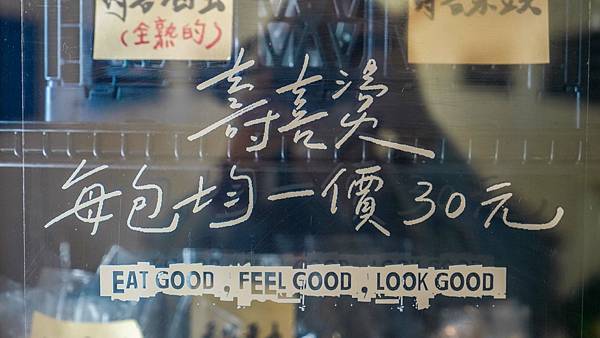 (全熟的)
壽喜燙
每包均一價30元
EAT GOOD , FEEL GOOD , LOOK GOOD